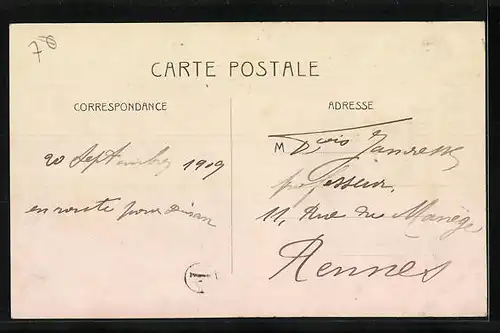 70
CARTE POSTALE
CORRESPONDANCE
ADRESSE
20 Septembre 1909
en route pour Dinan
M
professeur,
11, Rue du Manège
Rennes